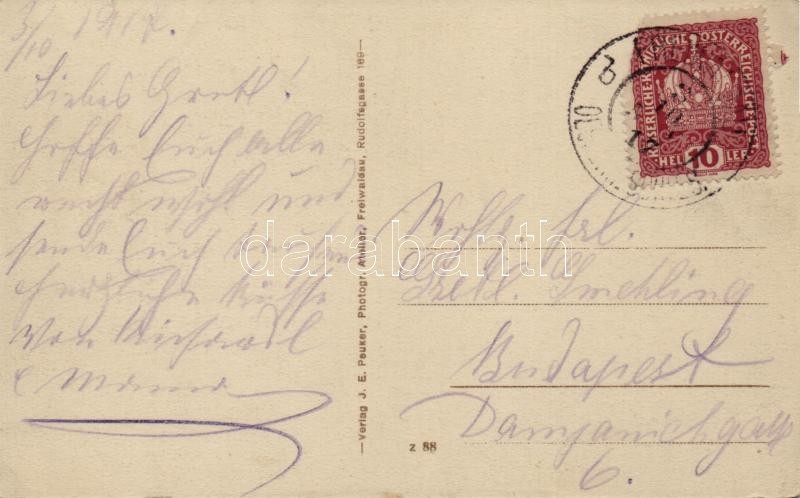 3/10 1917.
Liebes Gretl!
Hoffe Euch alle
recht wohl und
sende Euch
herzliche Küsse
von Richard
& Mama
Verlag J. E. Peuker, Photogr. Atelier, Freiwaldau, Rudolfsgasse 169
z 88
KAISERLICHE KÖNIGLICHE ÖSTERREICHISCHE POST
10
HELLER
Wohlg. Frl.
Gretl
Budapest
Damjanichgasse
6.
darabanth